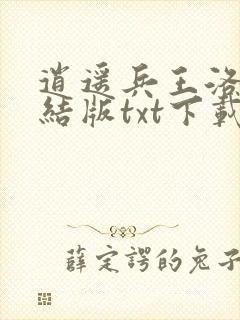 逍遥兵王洛
结版txt下载
薛定谔的兔子